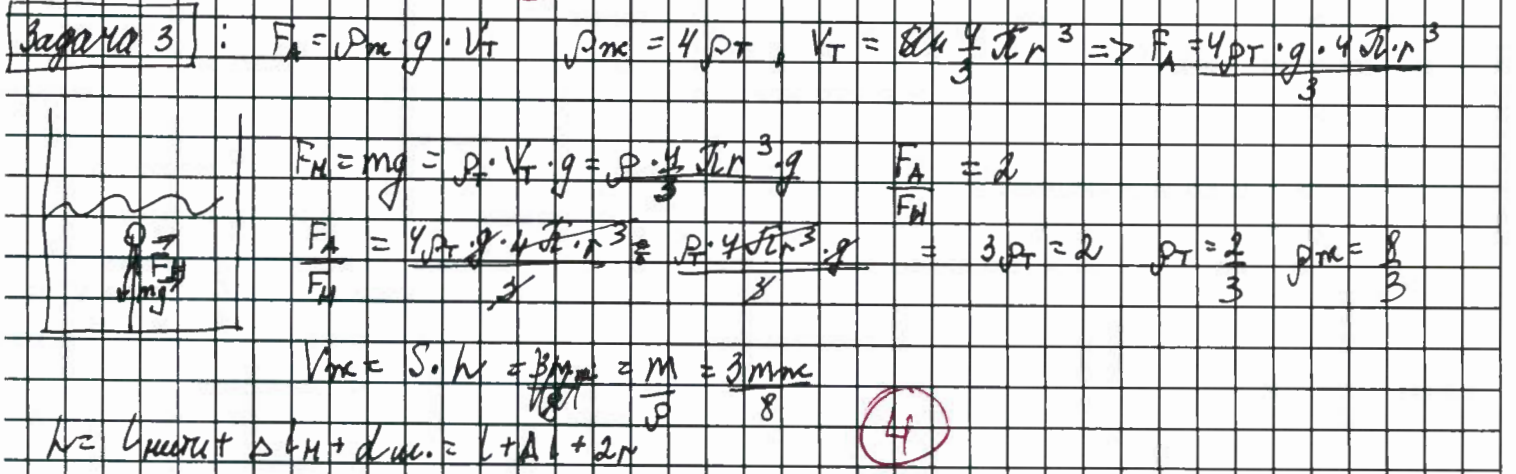 Задача 3 : F_A = ρж · g · V_T ρж = 4ρ_T , V_T = 4/3 πr³ => F_A = 4ρ_T · g · 4π·r³ / 3
F_H = mg = ρ_T · V_T · g = ρ · 4/3 πr³ · g F_A / F_H = 2
F_A / F_H = 4ρ_T · g · 4π · r³ / 3 : ρ_T · 4πr³ · g / 3 = 3ρ_T = 2 ρ_T = 2/3 ρж = 8/3
mg
Vж = S · h = m/ρ = 3mж / 8
4
h = lнити + Δl_H + dш. = l + Δl + 2r